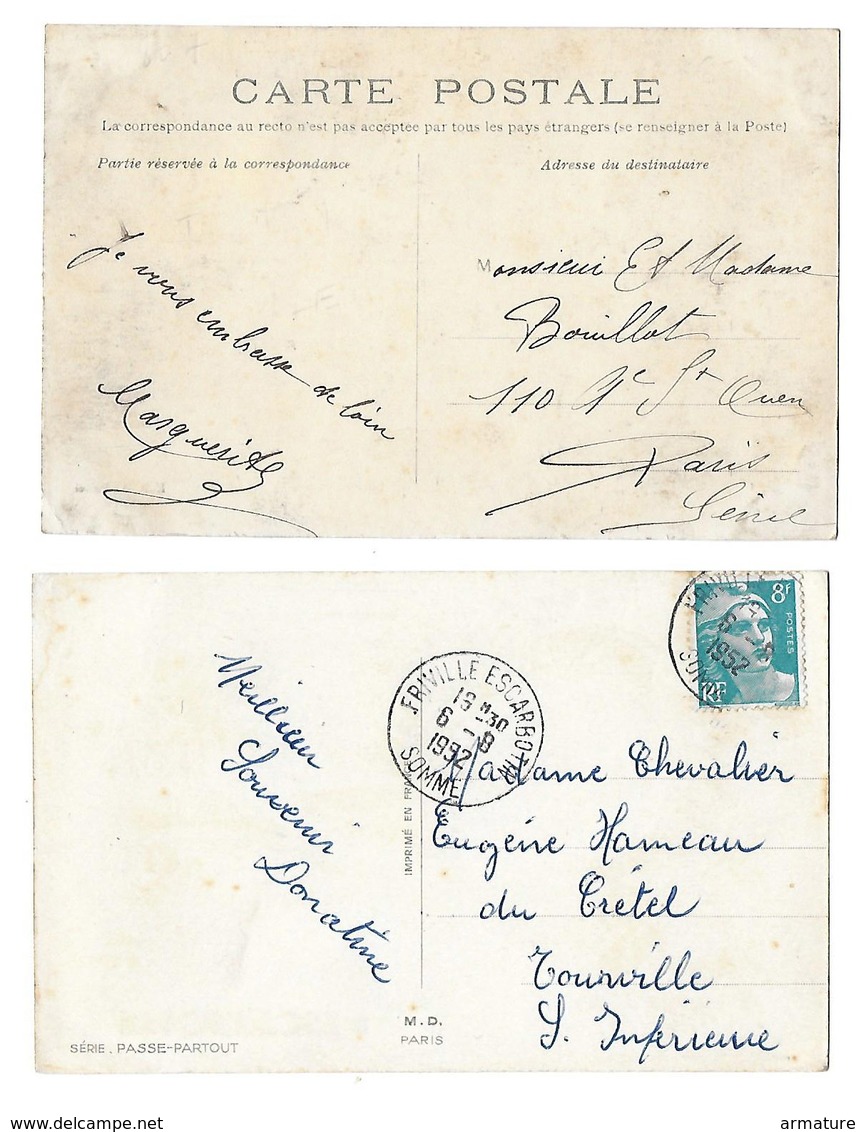 CARTE POSTALE
La correspondance au recto n'est pas acceptée par tous les pays étrangers (se renseigner à la Poste)
Partie réservée à la correspondance
Adresse du destinataire
Je vous embrasse de loin
Marguerite
Monsieur Et Madame
Bouillot
110 Ae St Ouen
Paris
Seine
8F
POSTES
RF
FRIVILLE
6 - 8
1952
SOMME
FRIVILLE ESCARBOTIN
18 H 30
6 - 8
1952
SOMME
Meillieur
Souvenir
Donatine
Madame Chevalier
Eugéne Hameau
du Crétel
Tourville
S. Inférieure
IMPRIMÉ EN FRANCE
M.D.
PARIS
SÉRIE. PASSE-PARTOUT
delcampe.net
armature